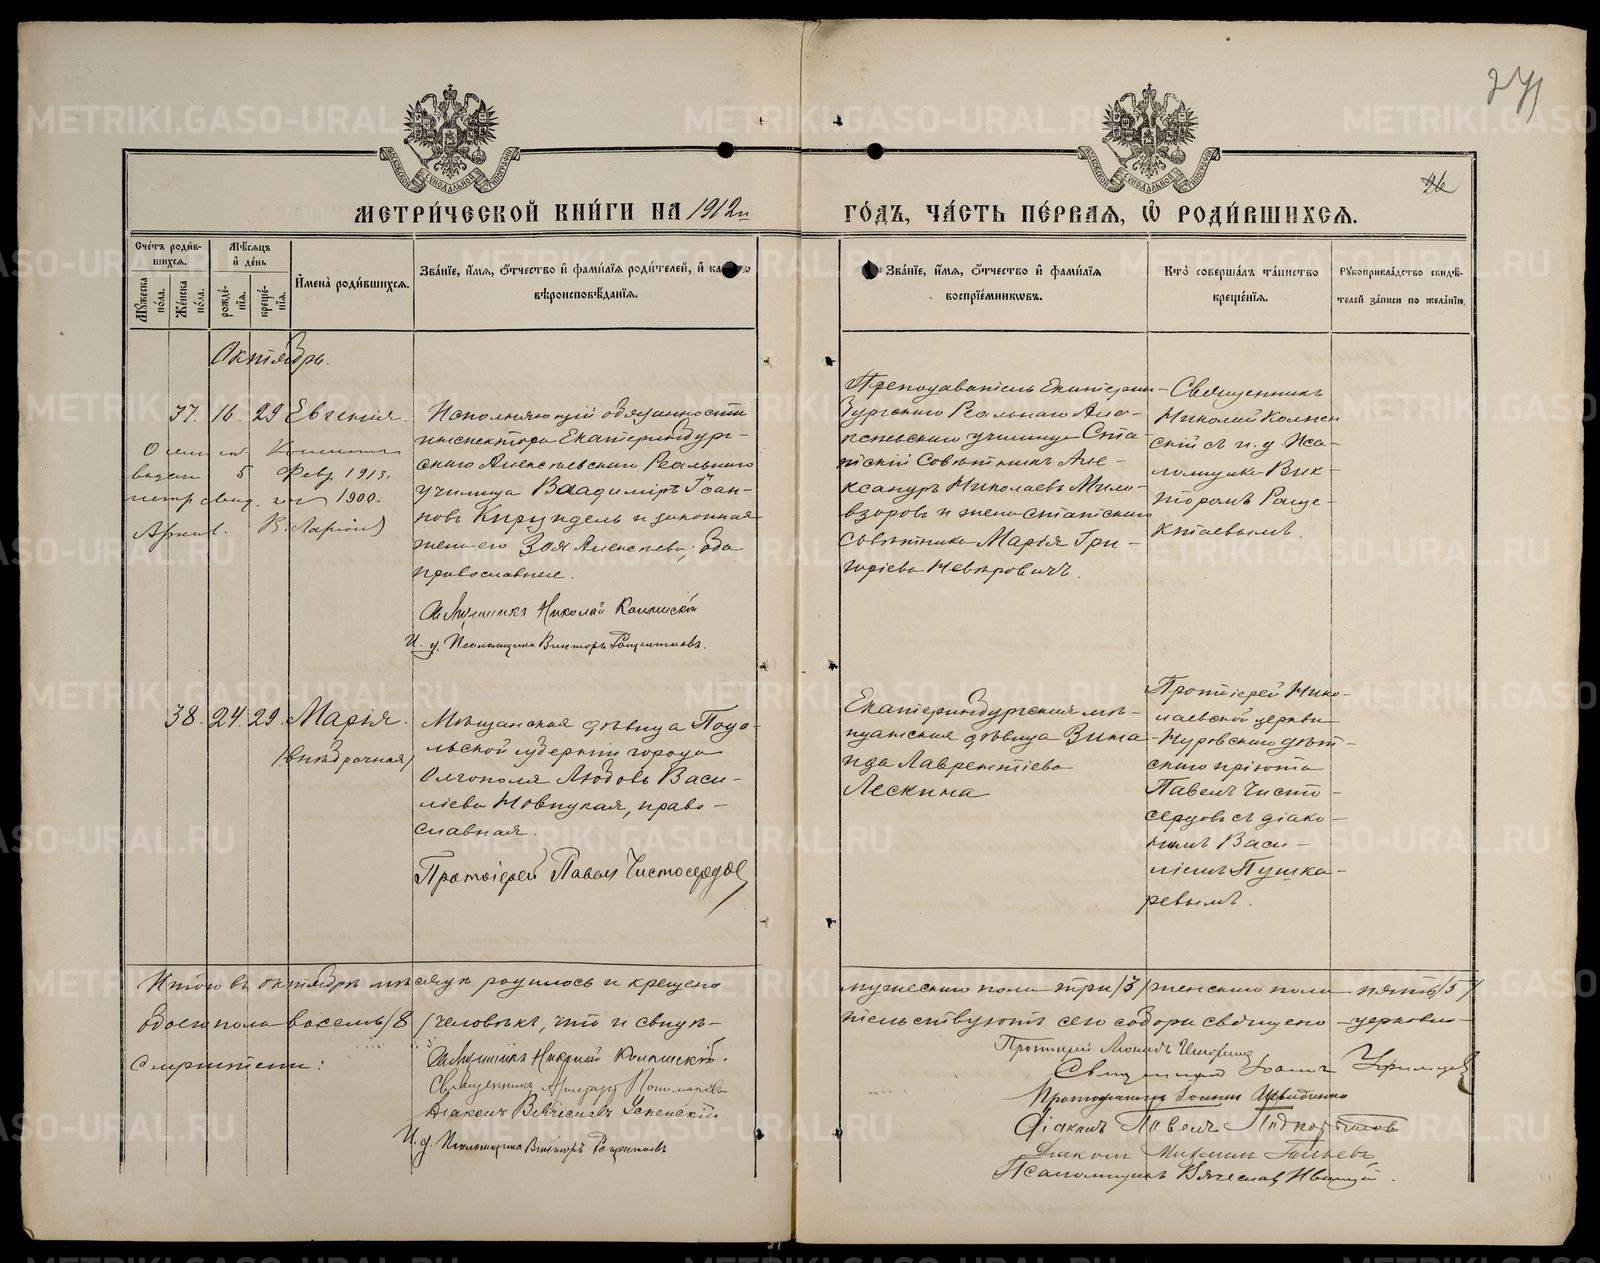 271
26
МЕТРИ́ЧЕСКОЙ КНИ́ГИ НА 1912й
ГО́ДЪ, ЧА́СТЬ ПЕ́РВАЯ, Ѡ҆ РОДИ́ВШИХСЯ.
Сче́тъ роди́в-
шихся.
Мꙋ́жеска по́ла.
Же́нска по́ла.
Мѣ́сяцъ
и҆ де́нь
рожде́-
нїя.
креще́-
нїя.
И҆мена̀ роди́вшихся.
Зва́нїе, и҆́мя, ѻ҆́тчество и҆ фами́лїя роди́телей, и҆ како́гѡ
вѣроисповѣ́данїя.
Зва́нїе, и҆́мя, ѻ҆́тчество и҆ фами́лїя
воспрїе́мникѡвъ.
Кто̀ соверша́лъ та́инство
креще́нїя.
Рꙋкоприкла́дство свидѣ́-
телей за́писи по жела́нїю.
Октябрь.
37. 16. 29 Евгенія.
выдан 5 Февр 1913.
метр свид. за № 1900.
Исполняющій обязанности
инспектора Екатеринбург-
скаго Алексѣевскаго Реальнаго
училища Владиміръ Іоан-
новъ Кирундель и законная
жена его Зоя Алексѣева, оба
православные.
Священникъ Николай
И. д. Псаломщика Викторъ Ращектаевъ.
Преподаватель Екатерин-
бургскаго Реальнаго Але-
ксѣевскаго училища Ста-
тскій Совѣтникъ Але-
ксандръ Николаевъ Мило-
взоровъ и жена статскаго
совѣтника Марія Гри-
горіева Невѣровичъ.
Священникъ
Николай
скій съ и. д. Пса-
ломщика Вик-
торомъ Раще-
ктаевымъ.
38. 24. 29. Марія.
/внѣбрачная/
Мѣщанская дѣвица Подо-
льской губерніи города
Ольгополя Любовь Васи-
ліева Новицкая, право-
славная.
Протоіерей Павелъ Чистосердовъ
Екатеринбургская мѣ-
щанская дѣвица Зина-
ида Лаврентіева
Лескина
Протоіерей Нико-
лаевской церкви
Нуровскаго дѣт-
скаго пріюта
Павелъ Чисто-
сердовъ съ діако-
номъ Васи-
ліемъ Пушка-
ревымъ.
Итого въ октябрѣ мѣсяцѣ родилось и крещено
мужескаго пола три /3/ женскаго пола пять /5/
обоего пола восемь /8/ человѣкъ, что и свидѣ-
тельствуютъ сего собора священно-церковно-
служители:
Священникъ Николай
Священникъ
Діаконъ Вячеславъ Успенскій
И. д. Псаломщика Викторъ Ращектаевъ
Протоіерей
Священникъ Іоаннъ
Протодіаконъ Іоаннъ
Діаконъ Павелъ
Діаконъ
Псаломщикъ Вячеслав
METRIKI.GASO-URAL.RU